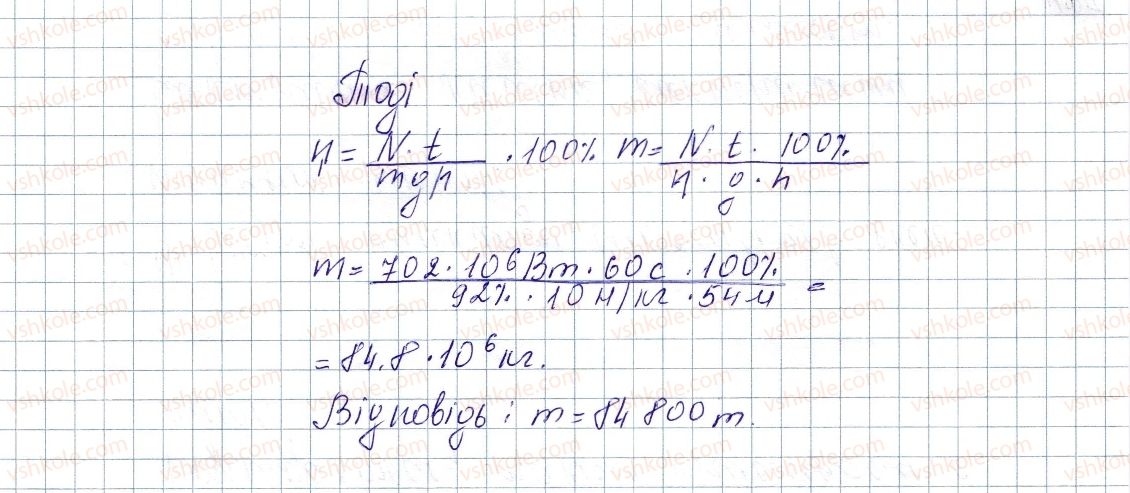 Тоді
η = N·t / mgh · 100% m = N·t·100% / η·g·h
m = 702·10⁶Вт·60с·100% / 92%·10Н/кг·54м =
= 84,8·10⁶кг.
Відповідь: m = 84 800 т.